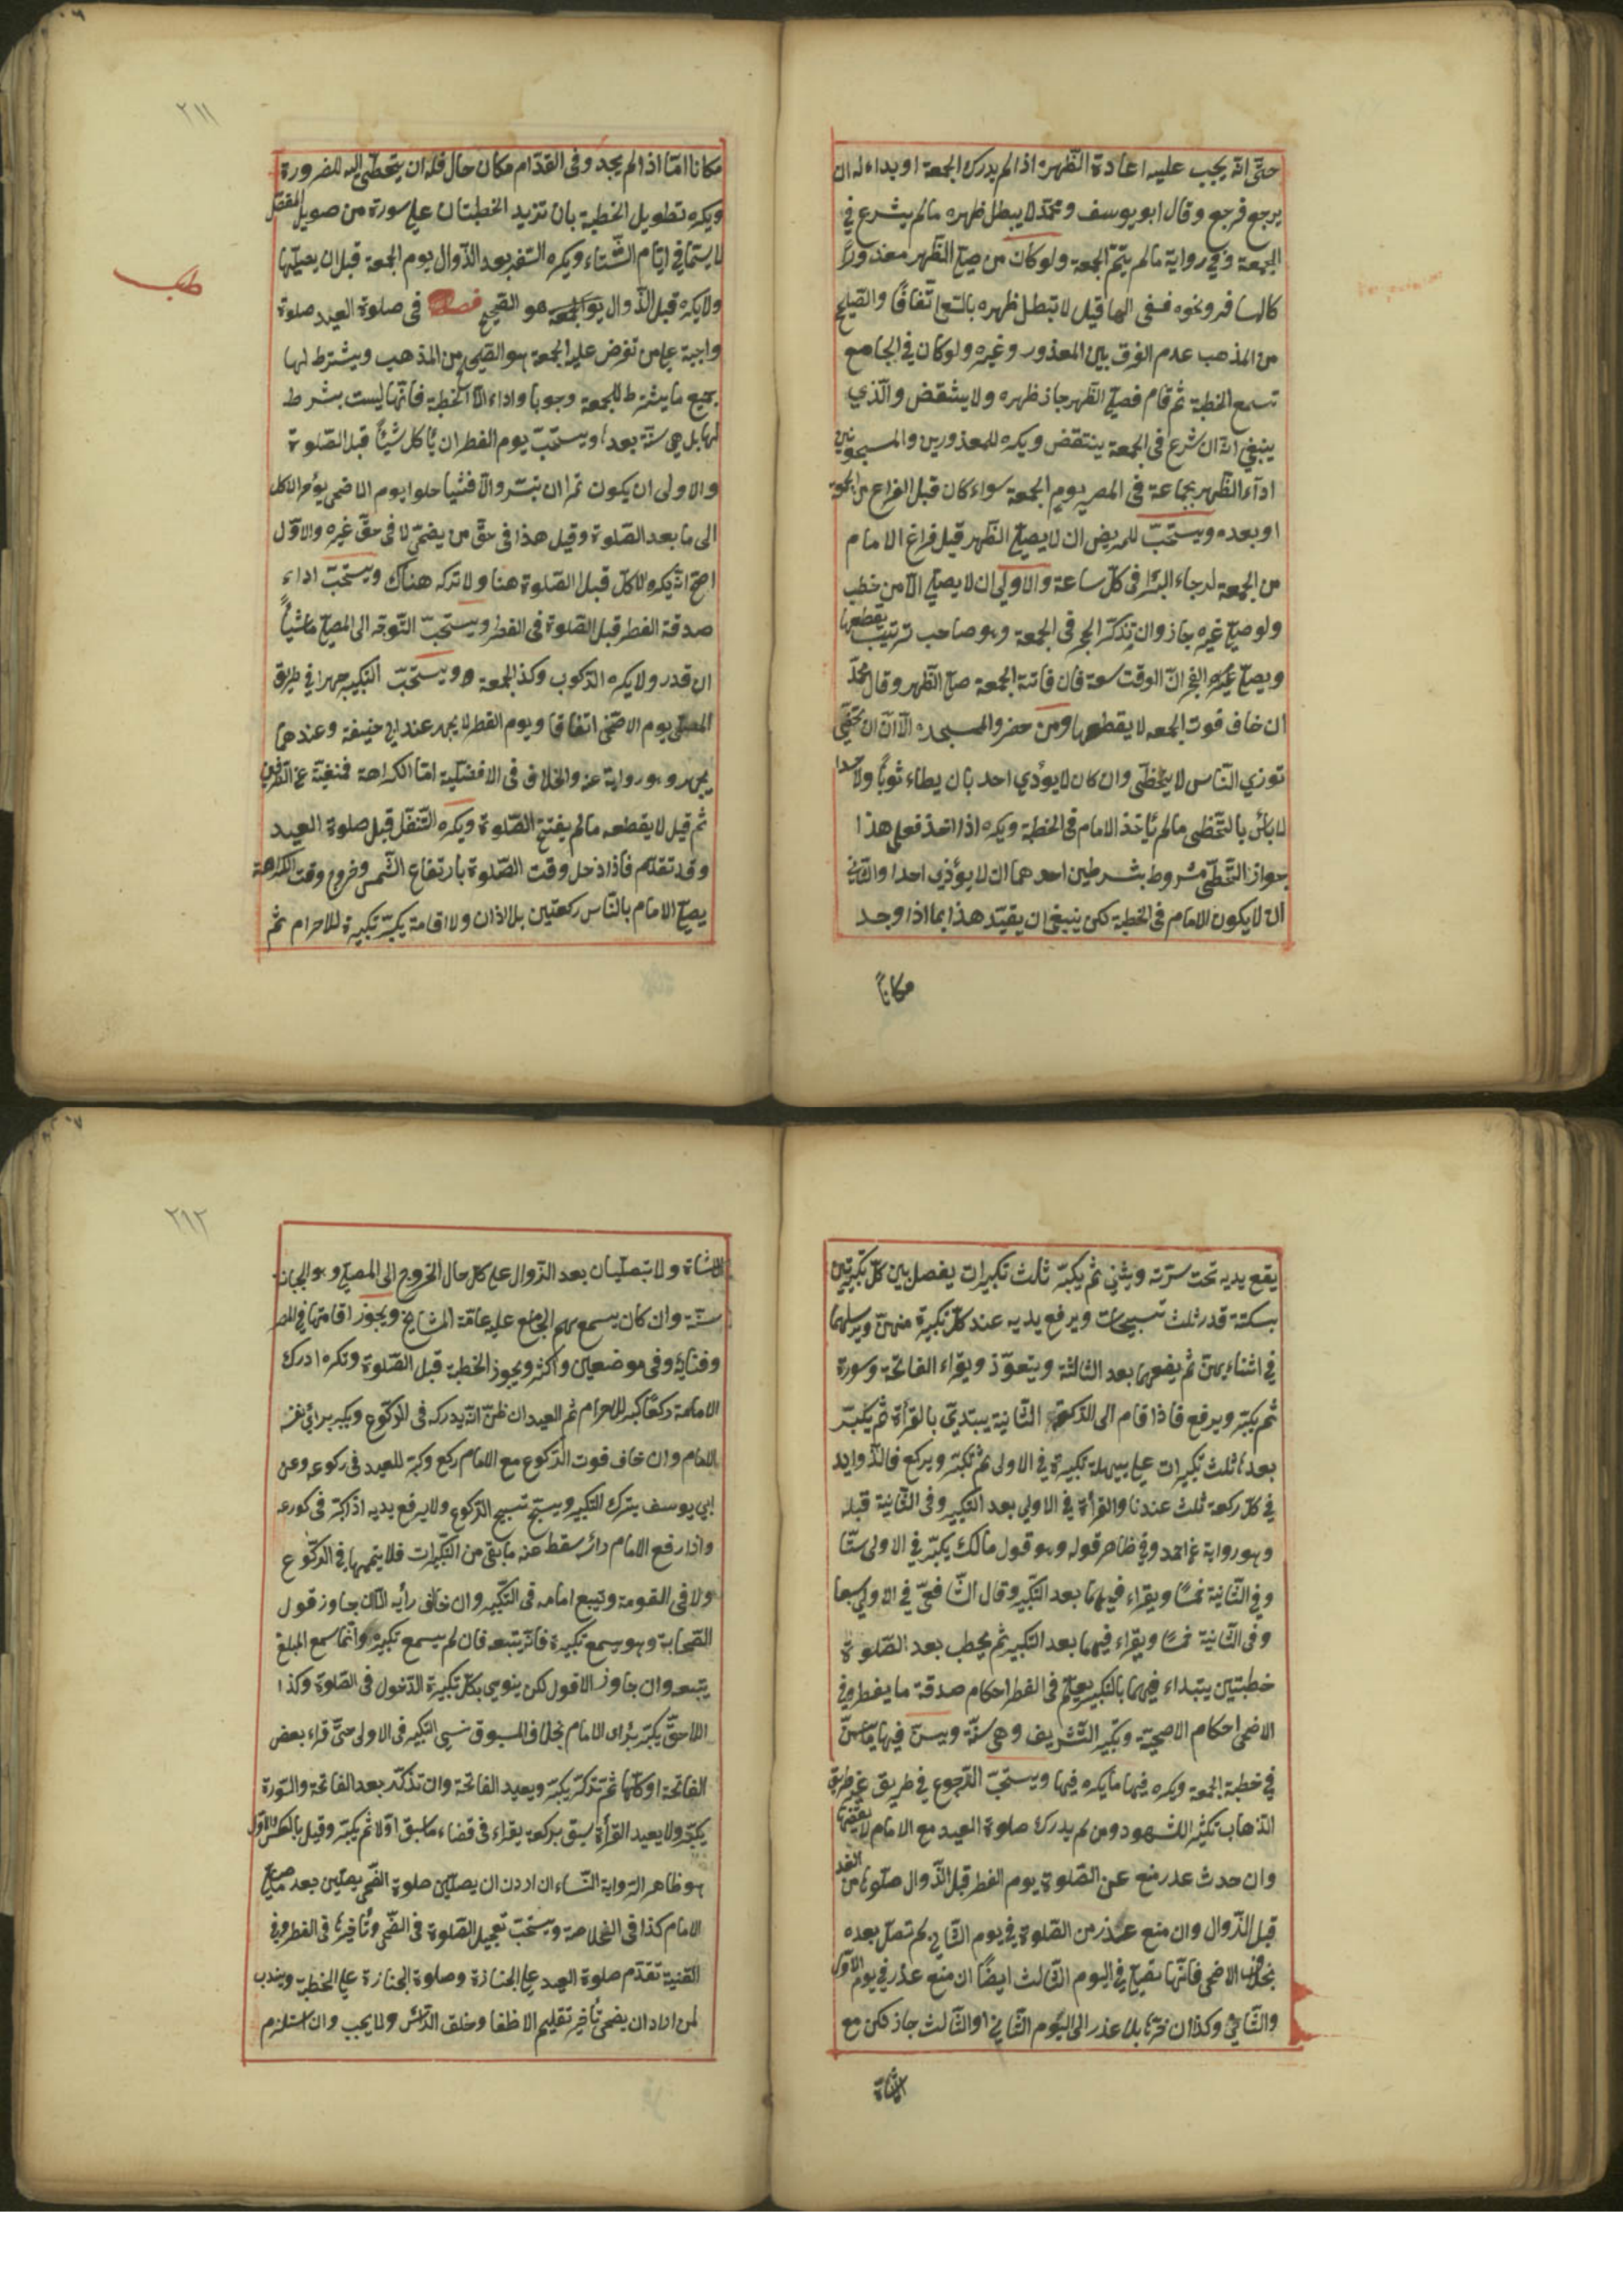 حتى انه يجب عليه اعادة الظهر اذا لم يدرك الجمعة او بداء له ان
يرجع فرجع وقال ابو يوسف ومحمد لا يبطل ظهره ما لم يشرع في
الجمعة وفي رواية ما لم يتم الجمعة ولو كان من صلى الظهر معذورا
كالمسافر ونحوه قيل لا تبطل ظهره بالسعى اتفاقا والصحيح
من المذهب عدم الفرق بين المعذور وغيره ولو كان في الجامع
تسمع الخطبة ثم قام فصلى الظهر جاز ظهره ولا ينتقض والذي
ينبغى انه ان شرع فى الجمعة ينتقض ويكره للمعذورين والمسجونين
اداء الظهر بجماعة فى المصر يوم الجمعة سواء كان قبل الفراغ من الجمعة
او بعده ويستحب للمريض ان لا يصلى الظهر قبل فراغ الامام
من الجمعة لرجاء البرء فى كل ساعة والاولى ان لا يصلى الا من خطب
ولو صلى غيره جاز وان تذكر الفجر فى الجمعة وهو صاحب ترتيب يقطعها
ويصلى الفجر ان الوقت سعة فان فاتته الجمعة صلى الظهر وقال محمد
ان خاف فوت الجمعه لا يقطعها ومن حضر والمسجد
توذي الناس لا يتخطى وان كان لا يؤدي احد بان يطاء ثوبا ولا جسدا
لا بأس بالتخطى ما لم يأخذ الامام فى الخطبة ويكره اذا اخذ فعلى هذا
جواز التخطى مشروط بشرطين احدهما ان لا يؤذي احدا والثاني
ان لا يكون للامام فى الخطبة لكن ينبغى ان يقيد هذا بما اذا وجد
مكانا
٢١١
مكانا امّا اذا لم يجد وفى القدّام مكان خال فله ان يتخطى اليه للضرورة
ويكره تطويل الخطبة بان تزيد الخطبتان على سورة من طويل المفصل
لا سيما في ايام الشتاء ويكره السفر بعد الزوال يوم الجمعة قبل ان يصليها
ولا يكره قبل الزوال هو الصحيح فصل فى صلوة العيد صلوة
واجبة على من تفرض عليه الجمعة هو الصحيح من المذهب ويشترط لها
جميع ما يشترط للجمعة وجوبا واداء الا الخطبة فانها ليست بشرط
لها بل هى سنّة بعدها ويستحبّ يوم الفطر ان يأكل شيئا قبل الصلوة
والاولى ان يكون تمرا ان تيسر والا فشيا حلوا يوم الاضحى يؤخر الاكل
الى ما بعد الصلوة وقيل هذا فى حق من يضحى لا فى حق غيره والاول
اصح انه يكره الاكل قبل الصلوة هنا ولا تركه هناك ويستحب اداء
صدقة الفطر قبل الصلوة فى الفطر ويستحب التوجه الى المصلى ماشيا
ان قدر ولا يكره الركوب وكذا الجمعة ويستحب التكبير جهرا في طريق
المصلى يوم الاضحى اتفاقا ويوم الفطر لا يجهر عند ابى حنيفة وعندهما
يجهر وهو رواية عنه والخلاف فى الافضلية امّا الكراهة فمنفية عن الطرفين
ثم قيل لا يقطعه ما لم يفتتح الصلوة ويكره التنفل قبل صلوة العيد
وقد تقدّم فاذا دخل وقت الصلوة بارتفاع الشمس وخروج وقت الكراهة
يصلى الامام بالناس ركعتين بلا اذان ولا اقامة يكبّر تكبيرة للاحرام ثم
يقع يديه تحت سرته ويثني ثم يكبر ثلث تكبيرات يفصل بين كل تكبيرتين
بسكتة قدر ثلث تسبيحات ويرفع يديه عند كل تكبيرة منهن ويرسلهما
في اثنائهن ثم يضعهما بعد الثالثة ويتعوّذ ويقراء الفاتحة وسورة
ثم يكبر ويرفع فاذا قام الى الركعة الثانية يبتدئ بالقرأة ثم يكبر
بعدها ثلث تكبيرات على تكبيرة في الاولى ثم تكبر ويركع فالزوايد
في كل ركعة ثلث عندنا والقرأة في الاولى بعد التكبير وفى الثانية قبله
وهو رواية عن احمد وفي ظاهر قوله وهو قول مالك يكبر في الاولى ستّا
وفي الثانية خمسا ويقراء فيهما بعد التكبير وقال الشافعى في الاولى سبعا
وفى الثانية خمسا ويقراء فيهما بعد التكبير ثم يخطب بعد الصلوة
خطبتين يبتداء فيهما بالتكبير يعلم فى الفطر احكام صدقة ما يفطر وفي
الاضحى احكام الاضحية وتكبير التشريف وهى سنّة ويسن فيها ما يسن
في خطبة الجمعة ويكره فيها ما يكره فيها ويستحب الرجوع في طريق غير طريق
الذهاب تكثير الشهود ومن لم يدرك صلوة العيد مع الامام لا يقضها
وان حدث عذر منع عن الصلوة يوم الفطر قبل الزوال صلوها من الغد
قبل الزوال وان منع عذر من الصلوة في يوم الثاني لم تصل بعده
بخلاف الاضحى فانها تصلى في اليوم الثالث ايضا ان منع عذر في يوم الاول
والثاني وكذا ان اخرها بلا عذر الى اليوم الثاني او الثالث جاز لكن مع
الاساءة
٢١٢
الاساءة ولا تصليان بعد الزوال على كل حال الخروج الى المصلى وهو الجبانة
سنّة وان كان يسعهم الجامع عليه عامّة المشايخ ويجوز اقامتها في المصر
وفنائه وفى موضعين واكثر ويجوز الخطبة قبل الصلوة وتكره ادرك
الامام راكعا كبر للاحرام ثم العيد ان ظنّ انه يدركه فى الركوع ويكبر برأي نفسه
الامام وان خاف فوت الركوع مع الامام ركع وكبر للعيد فى ركوعه وعن
ابى يوسف يترك التكبير ويسبح تسبيح الركوع ولا يرفع يديه اذا كبر فى ركوعه
واذا رفع الامام رأسه سقط عنه ما بقى من التكبيرات فلا يتمها في الركوع
ولا فى القومة ويتبع امامه فى التكبير وان خالف رأيه الا ان جاوز قول
الصحابة وهو يسمع تكبيره فانه يتبعه فان لم يسمع تكبيره وانما سمع المبلغ
يتبعه وان جاوز الاقول لكن ينوي بكل تكبيرة الدخول فى الصلوة وكذا
اللاحق يكبر برأى الامام بخلاف المسبوق نسى التكبير فى الاولى حتى قراء بعض
الفاتحة او كلها ثم تذكر يكبر ويعيد الفاتحة وان تذكر بعد الفاتحة والسورة
يكبر ولا يعيد القرأة سبق بركعة يقراء فى قضاء ما سبق اولا ثم يكبر وقيل بالعكس والاول
هو ظاهر الرواية النساء ان اردن ان يصلين صلوة الضحى يصلين بعد ما صلى
الامام كذا فى الخلاصة ويستحب تعجيل الصلوة فى الضحى وتأخيرها فى الفطر وفي
القنية تقدّم صلوة العيد على الجنازة وصلوة الجنازة على الخطبة ويندب
لمن اراد ان يضحى تأخير تقليم الاظفار وحلق الرأس ولا يجب وان استلزم